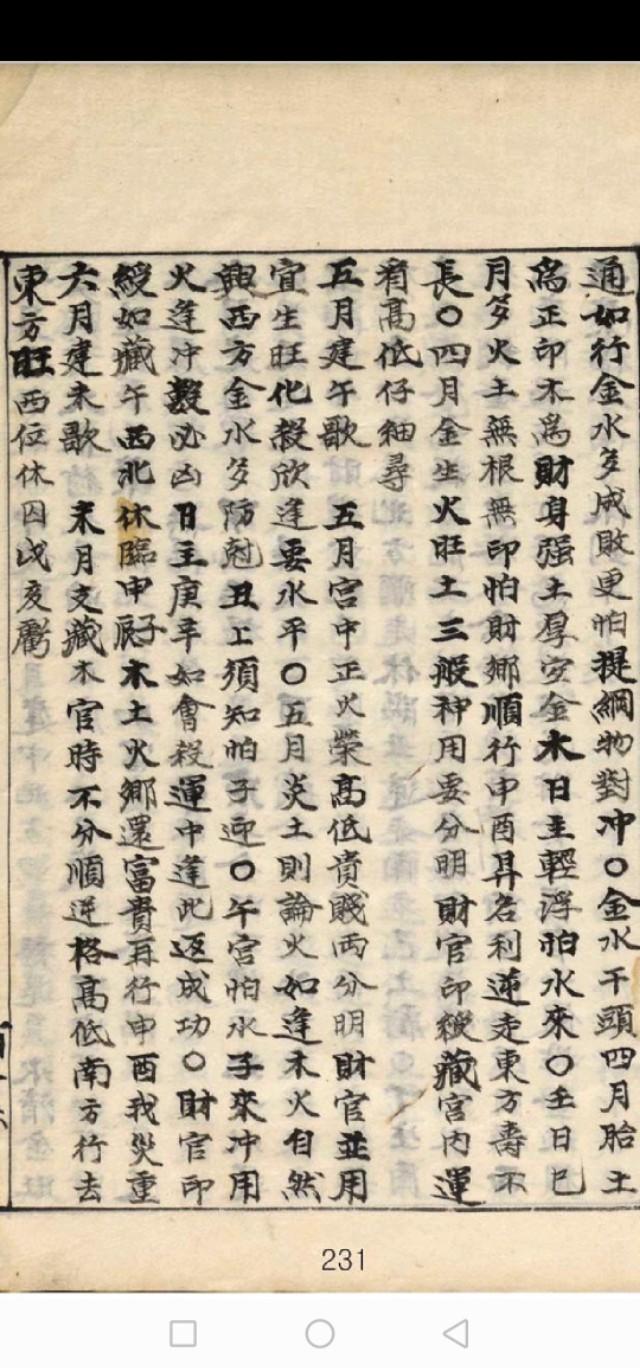 通如行金水多成敗更怕提綱物對冲〇金水干頭四月胎土
為正印木為財身强土厚安金木日主輕浮怕水來〇壬日巳
月多火土無根無印怕財鄉順行申酉昇名利逆走東方壽不
長〇四月金生火旺土三般神用要分明財官印綬藏宮内運
有高低仔細尋
五月建午歌 五月宮中正火榮高低貴賤兩分明財官並用
宜生旺化殺欣逢要水平〇五月炎土則論火如逢木火自然
興西方金水多防尅丑上須知怕子迎〇午宮怕水子來冲用
火逢冲數必凶日主庚辛如會殺運中逢此返成功〇財官印
綬如藏午西北休臨申子辰木土火鄉還富貴再行申酉我災重
六月建未歌 末月支藏木官時不分順逆格高低南方行去
東方旺西位休囚戌亥虧
231